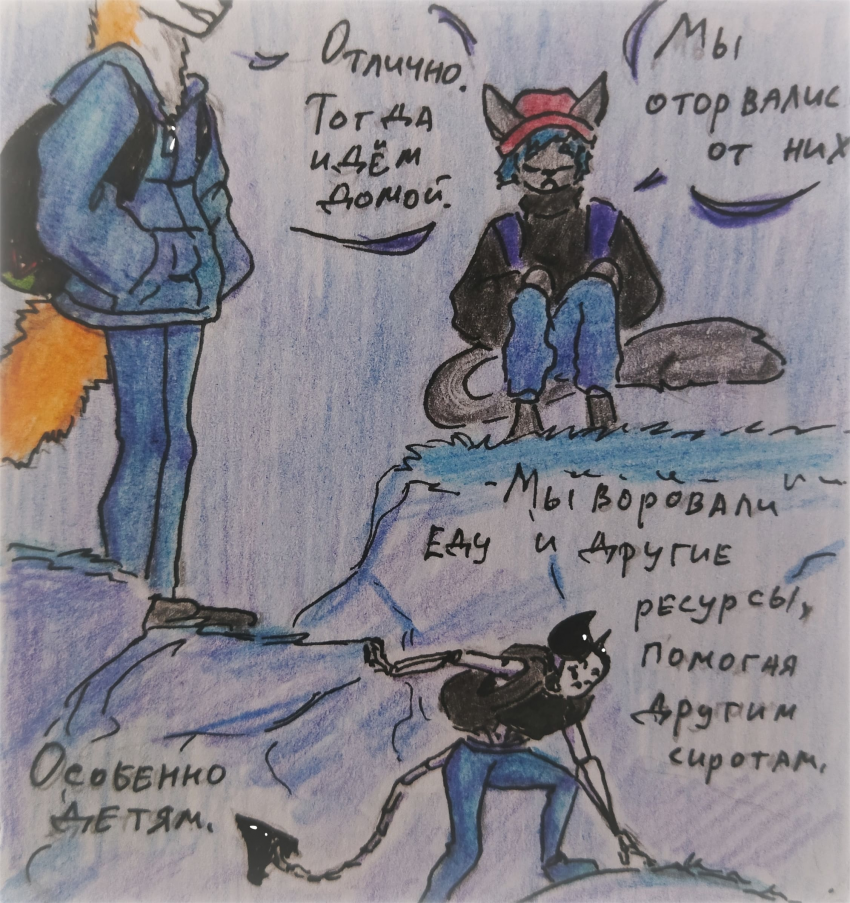 Мы
оторвалис
от них
Отлично.
Тогда
идём
домой.
Мы воровали
еду и другие
ресурсы,
помогая
другим
сиротам.
Особенно
детям.